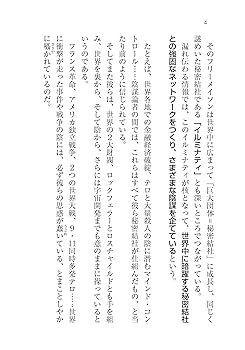 4
そのフリーメイソンは世界中にまたがって「巨大団体＝秘密結社」に成長し、同じく
謎めいた秘密結社である「イルミナティ」とも深いところでつながっている。
漏れ伝わる情報では、このイルミナティが核となって、世界中に暗躍する秘密結社
との強固なネットワークをつくり、さまざまな陰謀を企てているという。
たとえば、世界各地での金融経済破綻、テロと大量殺人の陰に潜むマインド・コン
トロール……陰謀論者の間では、これらはすべて彼ら秘密結社が仕組んだもの、と当
たり前のように信じられている。
そしてまた彼らは、世界の2大財閥、ロックフェラーとロスチャイルドとも手を組
み、世界を裏から、そして陰から、さらには宇宙開発までも意のままに操っていると
いうのである。
フランス革命・アメリカ独立戦争、2つの世界大戦、9・11同時多発テロ……世界
に衝撃が走った事件や戦争の陰には、必ず彼らの思惑が蠢いている、とまことしやか
に囁かれているのだ。